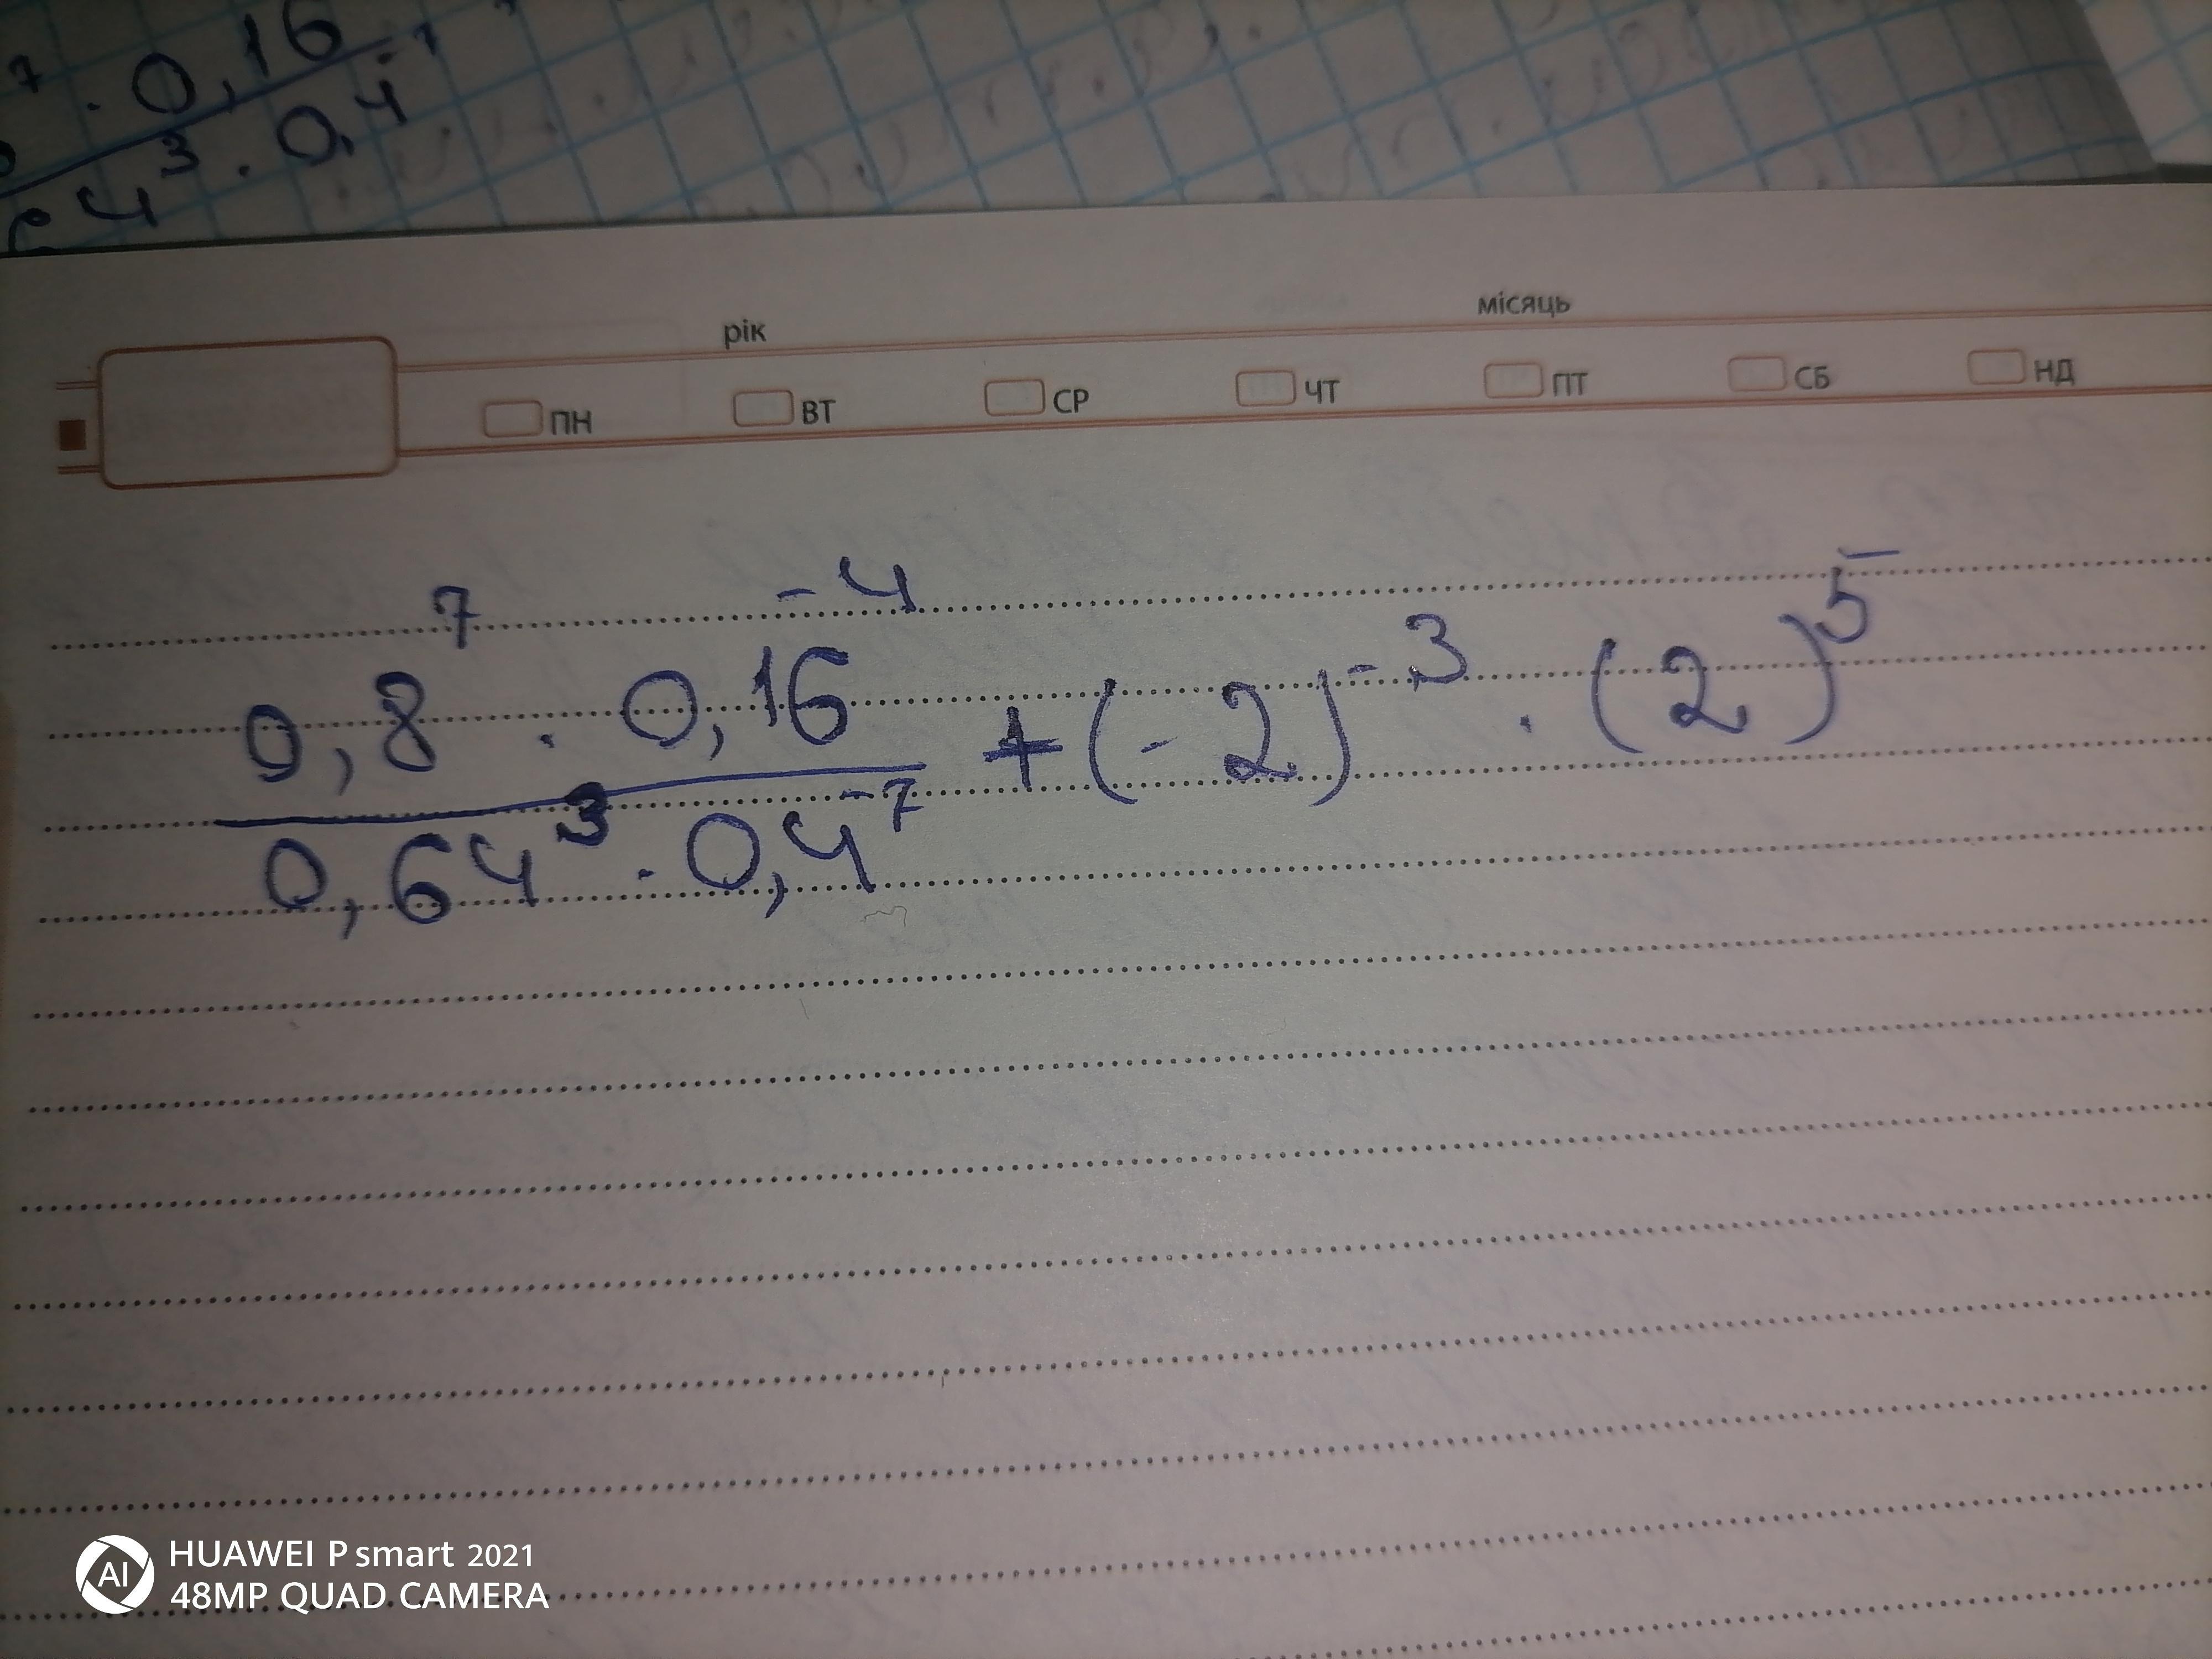 7 . 0,16
4³ . 0,4
рік місяць
ПН ВТ СР ЧТ ПТ СБ НД
0,8⁷ . 0,16⁻⁴ + (-2)⁻³ . (2)⁵
0,64³ . 0,4⁻⁷
AI HUAWEI P smart 2021
48MP QUAD CAMERA